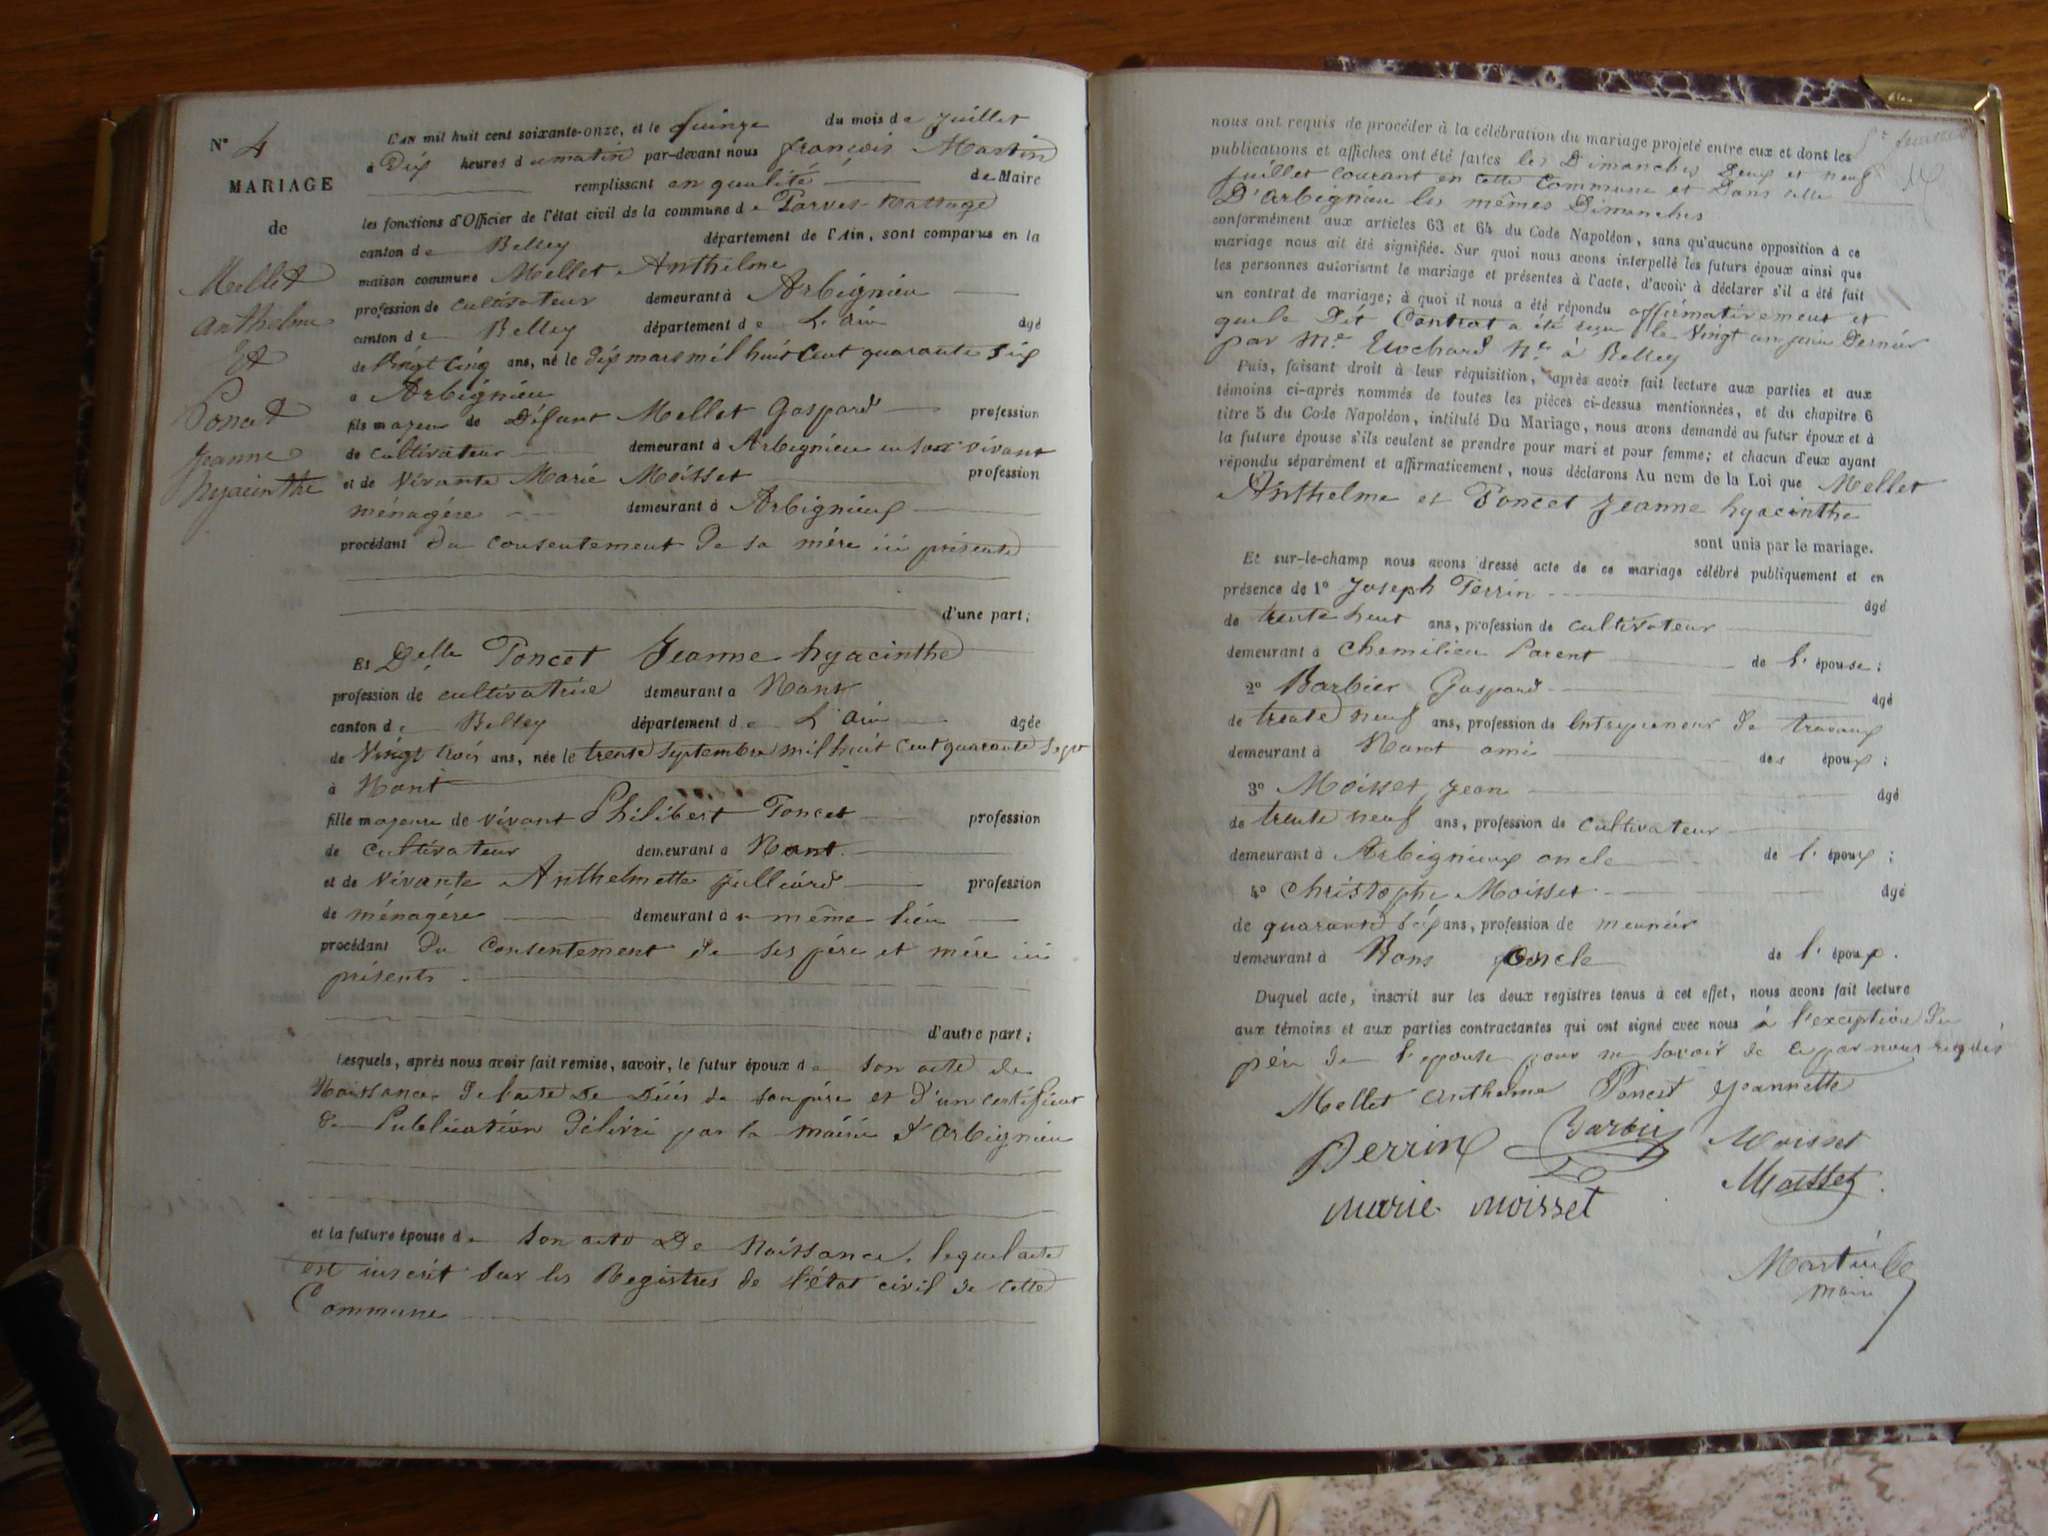 N° 4
MARIAGE
de
Mellet
Anthelme
Et
Poncet
Jeanne
hyacinthe
L'AN mil huit cent soixante-onze, et le quinze du mois de juillet
à Dix heures du matin par-devant nous françois Martin
remplissant en qualité de Maire
les fonctions d'Officier de l'état civil de la commune de Parves-Nattage
canton de Belley département de l'Ain, sont comparus en la
maison commune Mellet Anthelme
profession de cultivateur demeurant à Arbignieu
canton de Belley département de L'ain âgé
de Vingt Cinq ans, né le dix mars mil huit Cent quarante Six
à Arbignieu
fils majeur de Défunt Mellet Gaspard profession
de cultivateur demeurant à Arbignieu en son vivant
et de Vivante Marie Moisset profession
ménagère demeurant à Arbignieux
procédant du consentement de sa mère ici présente
d'une part;
Et Delle Poncet Jeanne hyacinthe
profession de cultivatrice demeurant à Nant
canton de Belley département de L'ain âgée
de Vingt trois ans, née le trente septembre mil huit Cent quarante Sept
à Nant
fille majeure de vivant Philibert Poncet profession
de cultivateur demeurant à Nant
et de vivante Anthelmette Julliard profession
de ménagère demeurant à même lieu
procédant du Consentement de ses père et mère ici
présents
d'autre part;
Lesquels, après nous avoir fait remise, savoir, le futur époux de son acte de
Naissance. De l'acte De Décès de son père et d'un certificat
de Publication délivré par la mairie d'Arbignieu
et la future épouse de son acte De Naissance. lequel acte
est inscrit sur les Registres de l'état civil de cette
Commune
nous ont requis de procéder à la célébration du mariage projeté entre eux et dont les
publications et affiches ont été faites les Dimanches Deux et neuf
juillet courant en cette Commune et Dans celle
D'Arbignieu les mêmes Dimanches
conformément aux articles 63 et 64 du Code Napoléon, sans qu'aucune opposition à ce
mariage nous ait été signifiée. Sur quoi nous avons interpellé les futurs époux ainsi que
les personnes autorisant le mariage et présentes à l'acte, d'avoir à déclarer s'il a été fait
un contrat de mariage; à quoi il nous a été répondu affirmativement et
que le Dit Contrat a été reçu le Vingt un juin Dernier
par Me Nre à Belley
Puis, faisant droit à leur réquisition, après avoir fait lecture aux parties et aux
témoins ci-après nommés de toutes les pièces ci-dessus mentionnées, et du chapitre 6
titre 5 du Code Napoléon, intitulé Du Mariage, nous avons demandé au futur époux et à
la future épouse s'ils veulent se prendre pour mari et pour femme; et chacun d'eux ayant
répondu séparément et affirmativement, nous déclarons Au nom de la Loi que Mellet
Anthelme et Poncet Jeanne hyacinthe
sont unis par le mariage.
Et sur-le-champ nous avons dressé acte de ce mariage célébré publiquement et en
présence de 1° Joseph Perrin âgé
de ans, profession de cultivateur
demeurant à Chemilieu Parent de l' épouse;
2° Barbier Gaspard âgé
de trente neuf ans, profession de Entrepreneur de travaux
demeurant à Nant ami des époux;
3° Moisset Jean âgé
de trente neuf ans, profession de cultivateur
demeurant à Arbignieux oncle de l' époux;
4° Christophe Moisset âgé
de quarante Six ans, profession de meunier
demeurant à Nans oncle de l' époux.
Duquel acte, inscrit sur les deux registres tenus à cet effet, nous avons fait lecture
aux témoins et aux parties contractantes qui ont signé avec nous à l'exception du
père de l'épouse pour ne savoir de ce par nous requis
Mellet Anthelme Poncet Jeannette
Perrin Barbier Moisset
Marie Moisset Moisset
Martin
maire